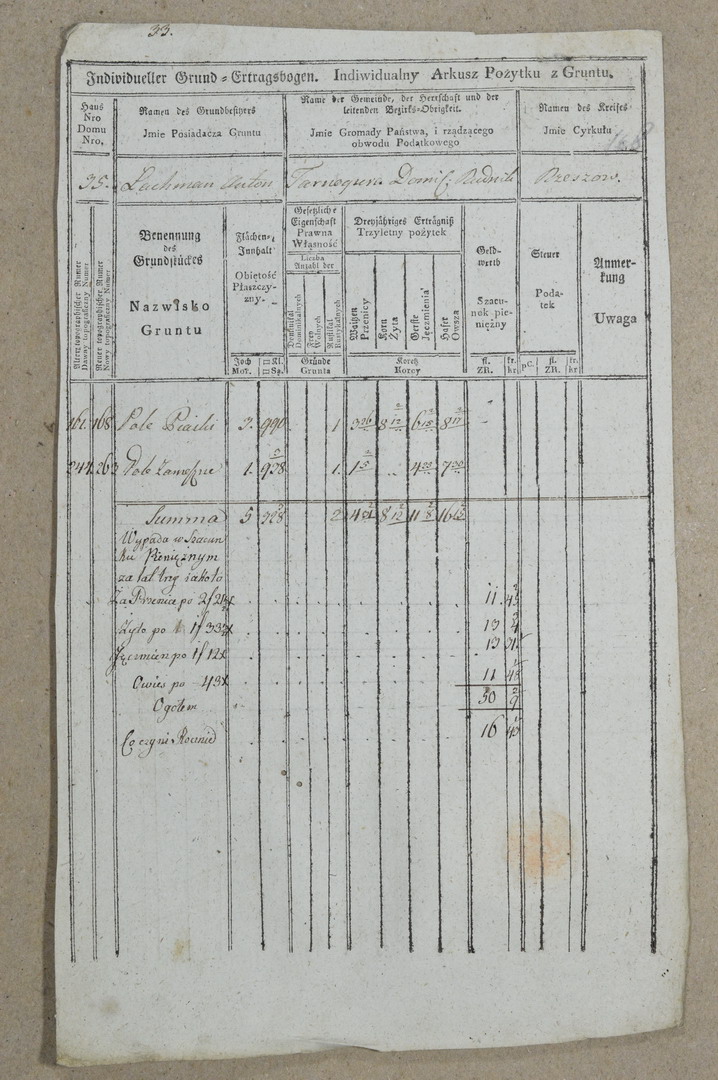 33.
Individueller Grund-Ertragsbogen. Indiwidualny Arkusz Pożytku z Gruntu.
Haus Nro Domu Nro.
Namen des Grundbesitzers
Jmie Posiadacza Gruntu
Name der Gemeinde, der Herrschaft und der
leitenden Bezirks-Obrigkeit.
Jmie Gromady Państwa, i rządzącego
obwodu Podatkowego
Namen des Kreises
Jmie Cyrkułu
168
35. Lachman Anton Tarnogura Domif: Rudnik Rzeszow.
Alter topographischer Numer
Dawny topograficzny Numer
Neuer topographischer Numer
Nowy topograficzny Numer
Benennung
des
Grundstückes
Nazwisko
Gruntu
Flächen-
Innhalt
Obiętość
Płaszczy-
zny.
Joch
Mor.
□ Kl.
□ Są.
Gesetzliche
Eigenschaft
Prawna
Własność
Liczba
Anzahl der
Dominikal
Dominikalnych
Frey
Wolnych
Rustikal
Rustykalnych
Gründe
Grunta
Dreyjähriges Erträgniß
Trzyletny pożytek
Waitzen
Pszenicy
Korn
Żyta
Gerste
Jęczmienia
Hafer
Owsa
Koretz
Korcy
Geld-
werth
Szacu-
nok pie-
niężny
fl.
ZR.
kr.
kr
Steuer
Poda-
tek
pC.
fl.
ZR.
kr.
kr
Anmer-
kung
Uwaga
161. 168 Pole Piaski 3. 990 1
244. 263 Pole 1. 938 1.
Summa 5 328 2
Wypada w Szacun
ku Pienięcznym
za
Za Przenice po 2f 11 45
Żyto po 1f 33 13 4
Jęczmien po 1f 12x 13 31
Owies po 43x 11 48
Ogółem 50 9
Co czyni Rocznie 16 43